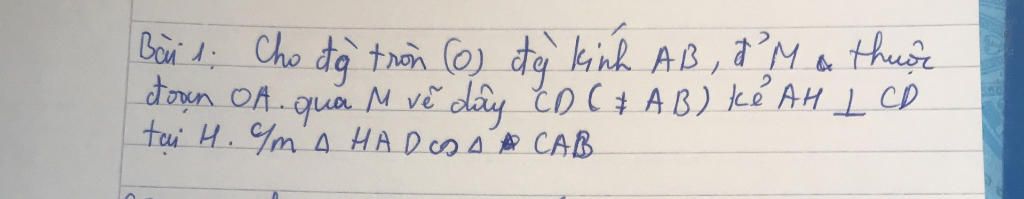 Bài 1: Cho đg̀ tròn (O) đg̀ kính AB, đ' M thuộc
đoạn OA. qua M vẽ dây CD (≠ AB) kẻ AH ⊥ CD
tại H. c/m Δ HAD ∽ Δ CAB